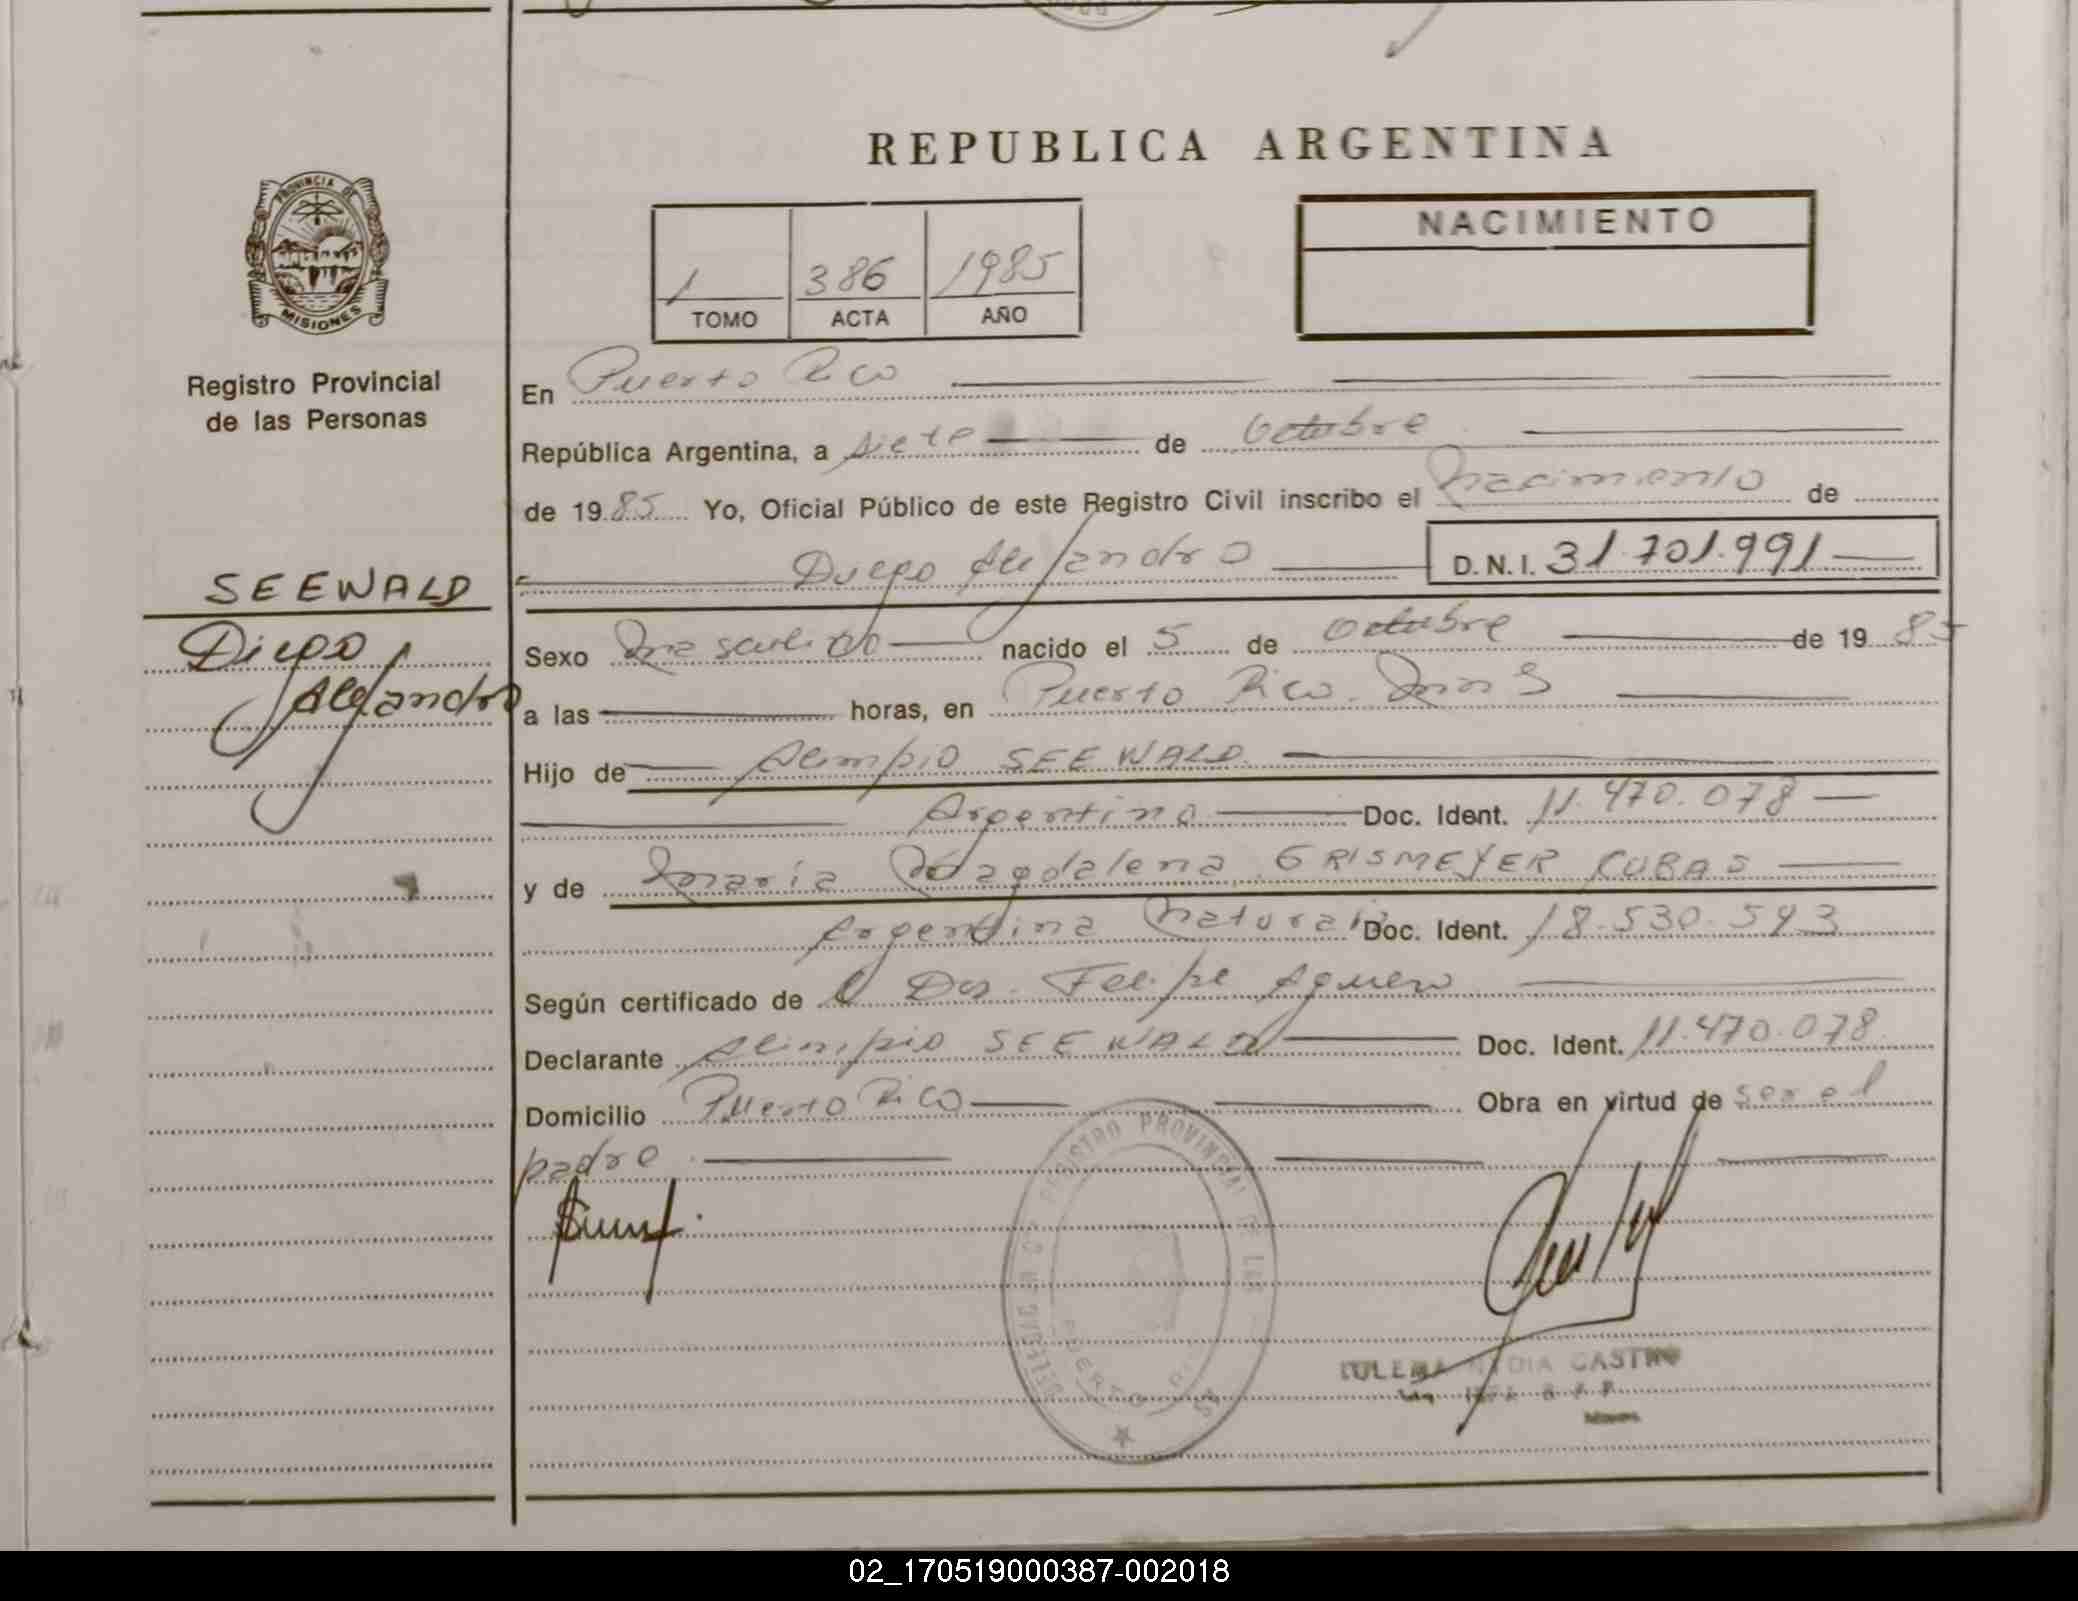 REPUBLICA ARGENTINA
PROVINCIA DE
MISIONES
Registro Provincial
de las Personas
1 386 1985
TOMO ACTA AÑO
NACIMIENTO
En Puerto Rico
República Argentina, a siete de Octubre
de 1985 Yo, Oficial Público de este Registro Civil inscribo el Nacimiento de
Diego Alejandro D.N.I. 31.701.991
SEEWALD
Diego
Alejandro
Sexo Masculino nacido el 5 de Octubre de 1985
a las horas, en Puerto Rico. Mnes
Hijo de Alimpio SEEWALD
Argentino Doc. Ident. 11.470.078
y de María Magdalena GRISMEYER CUBAS
Argentina Natural Doc. Ident. 18.530.593
Según certificado de Dr. Felipe Aguero
Declarante Alimpio SEEWALD Doc. Ident. 11.470.078
Domicilio Puerto Rico Obra en virtud de ser el
padre
REGISTRO PROVINCIAL DE LAS
PUERTO RICO
NYDIA CASTRO
02_170519000387-002018